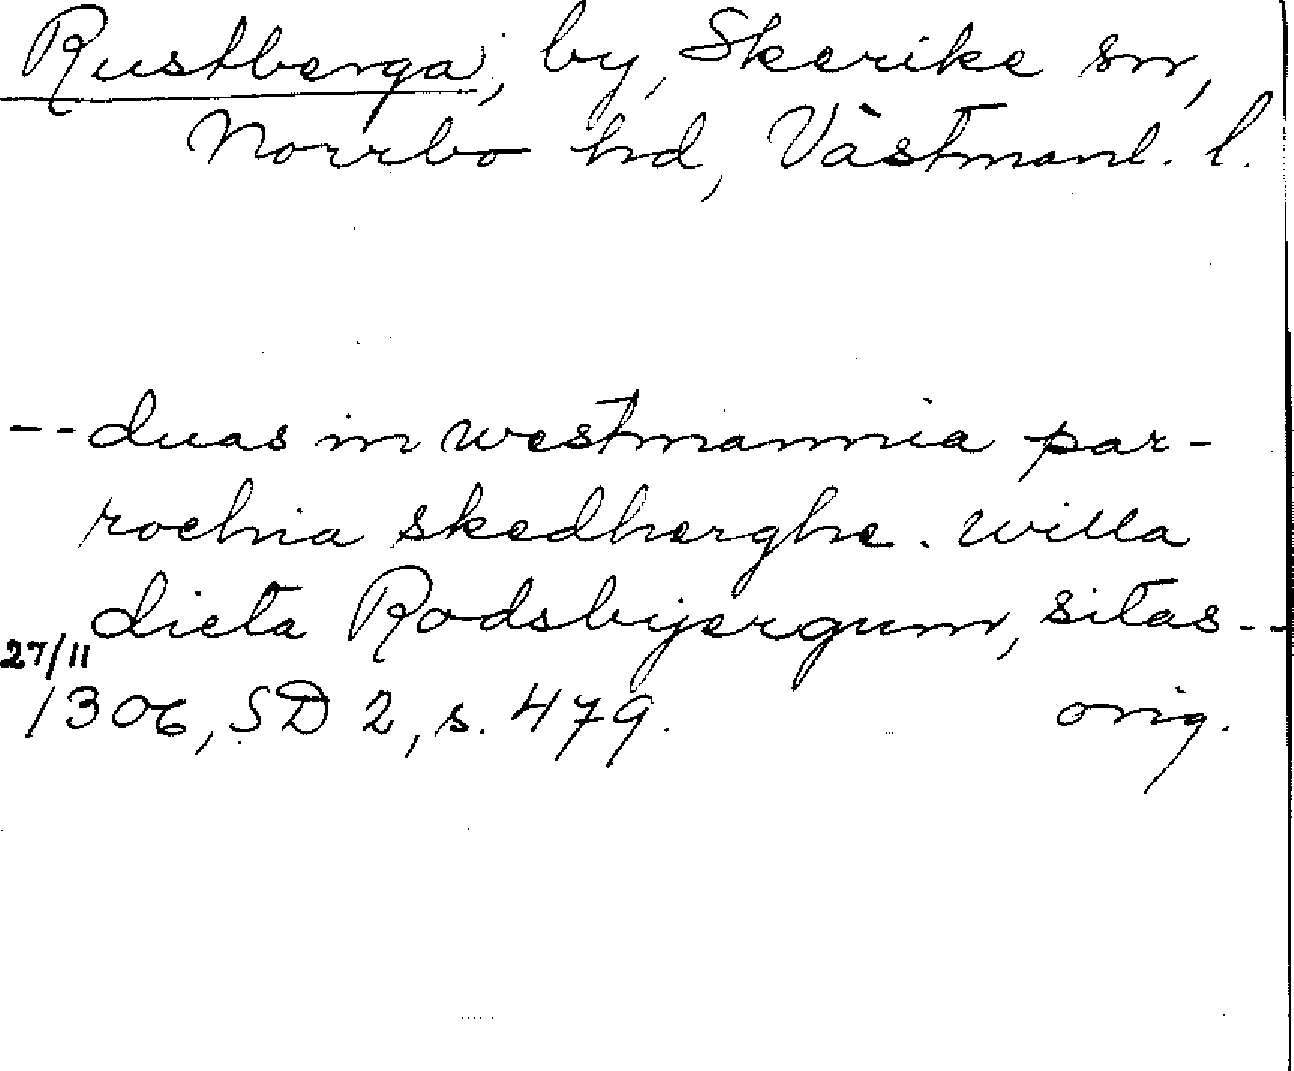 Rustberga, by, Skerike sn,
Norrbo hd, Västmanl. l.
-- duas in westmannia par-
rochia skedherghe. willa
dicta Rodsbyergum, sitas --
27/11
1306, SD 2, s. 479. orig.